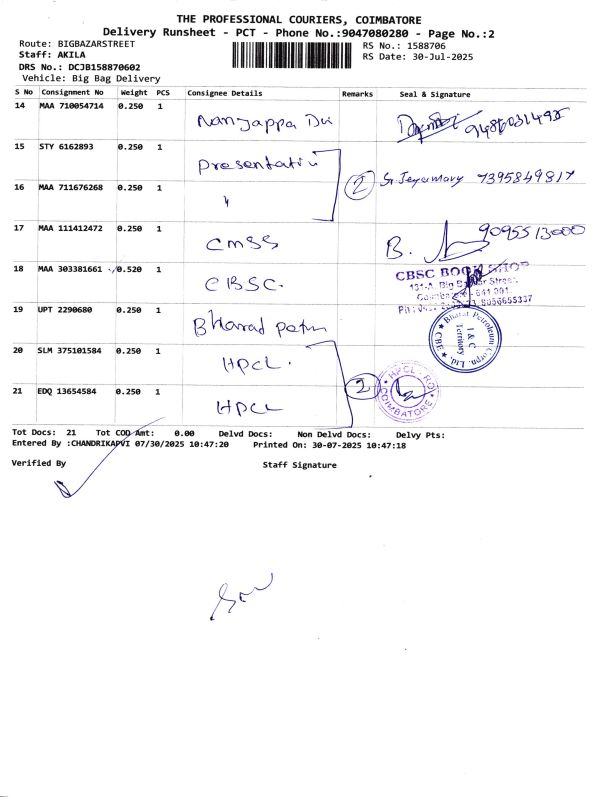 THE PROFESSIONAL COURIERS, COIMBATORE
Delivery Runsheet - PCT - Phone No.:9047080280 - Page No.:2
Route: BIGBAZARSTREET
RS No.: 1588706
Staff: AKILA
RS Date: 30-Jul-2025
DRS No.: DCJB158870602
Vehicle: Big Bag Delivery
S No Consignment No Weight PCS Consignee Details Remarks Seal & Signature
14 MAA 710054714 0.250 1 Nanjappa
15 STY 6162893 0.250 1 presentation
2 Sr Jeyamary 7395849817
16 MAA 711676268 0.250 1 "
17 MAA 111412472 0.250 1 CMSS B. 9095513000
18 MAA 303381661 0.520 1 CBSC.
CBSC BOOK SHOP
131-A, Big Bazaar Street,
Coimbatore - 641 001.
19 UPT 2290680 0.250 1 Bharad petrn
Bharat Petroleum Corpn. Ltd.
I & C
Territory
CBE
20 SLM 375101584 0.250 1 HPCL.
2
HPCL - RO
COIMBATORE
21 EDQ 13654584 0.250 1 HPCL
Tot Docs: 21 Tot COD Amt: 0.00 Delvd Docs: Non Delvd Docs: Delvy Pts:
Entered By :CHANDRIKAPVI 07/30/2025 10:47:20 Printed On: 30-07-2025 10:47:18
Verified By Staff Signature